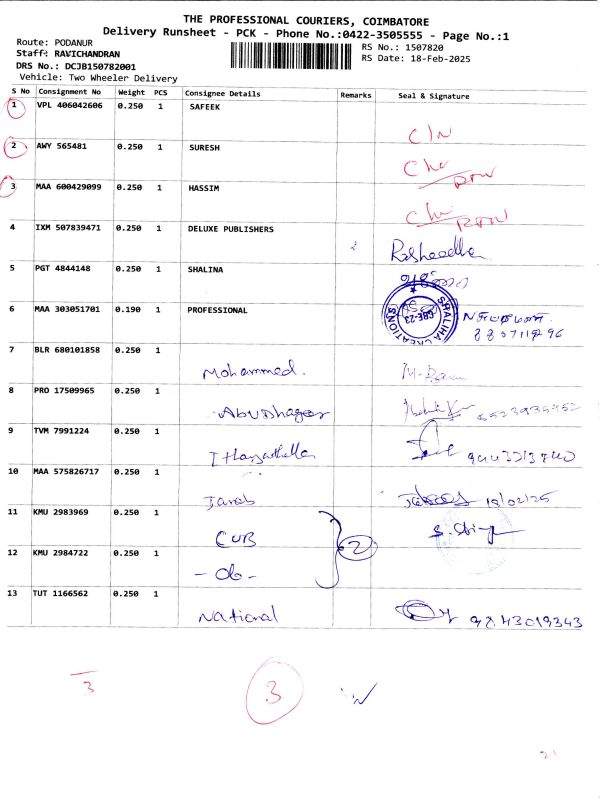 THE PROFESSIONAL COURIERS, COIMBATORE
Delivery Runsheet - PCK - Phone No.:0422-3505555 - Page No.:1
Route: PODANUR
Staff: RAVICHANDRAN
DRS No.: DCJB150782001
Vehicle: Two Wheeler Delivery
RS No.: 1507820
RS Date: 18-Feb-2025
S No Consignment No Weight PCS Consignee Details Remarks Seal & Signature
1 VPL 406042606 0.250 1 SAFEEK
2 AWY 565481 0.250 1 SURESH
3 MAA 600429099 0.250 1 HASSIM
4 IXM 507839471 0.250 1 DELUXE PUBLISHERS Rasheedha
5 PGT 4844148 0.250 1 SHALINA
6 MAA 303051701 0.190 1 PROFESSIONAL
SHALIHA CREATIONS
CBE-23
7 BLR 680101858 0.250 1 Mohammed.
8 PRO 17509965 0.250 1
9 TVM 7991224 0.250 1
10 MAA 575826717 0.250 1 19/02/25
11 KMU 2983969 0.250 1 CUB 2
12 KMU 2984722 0.250 1 -do-
13 TUT 1166562 0.250 1 National 9843019343
3
3